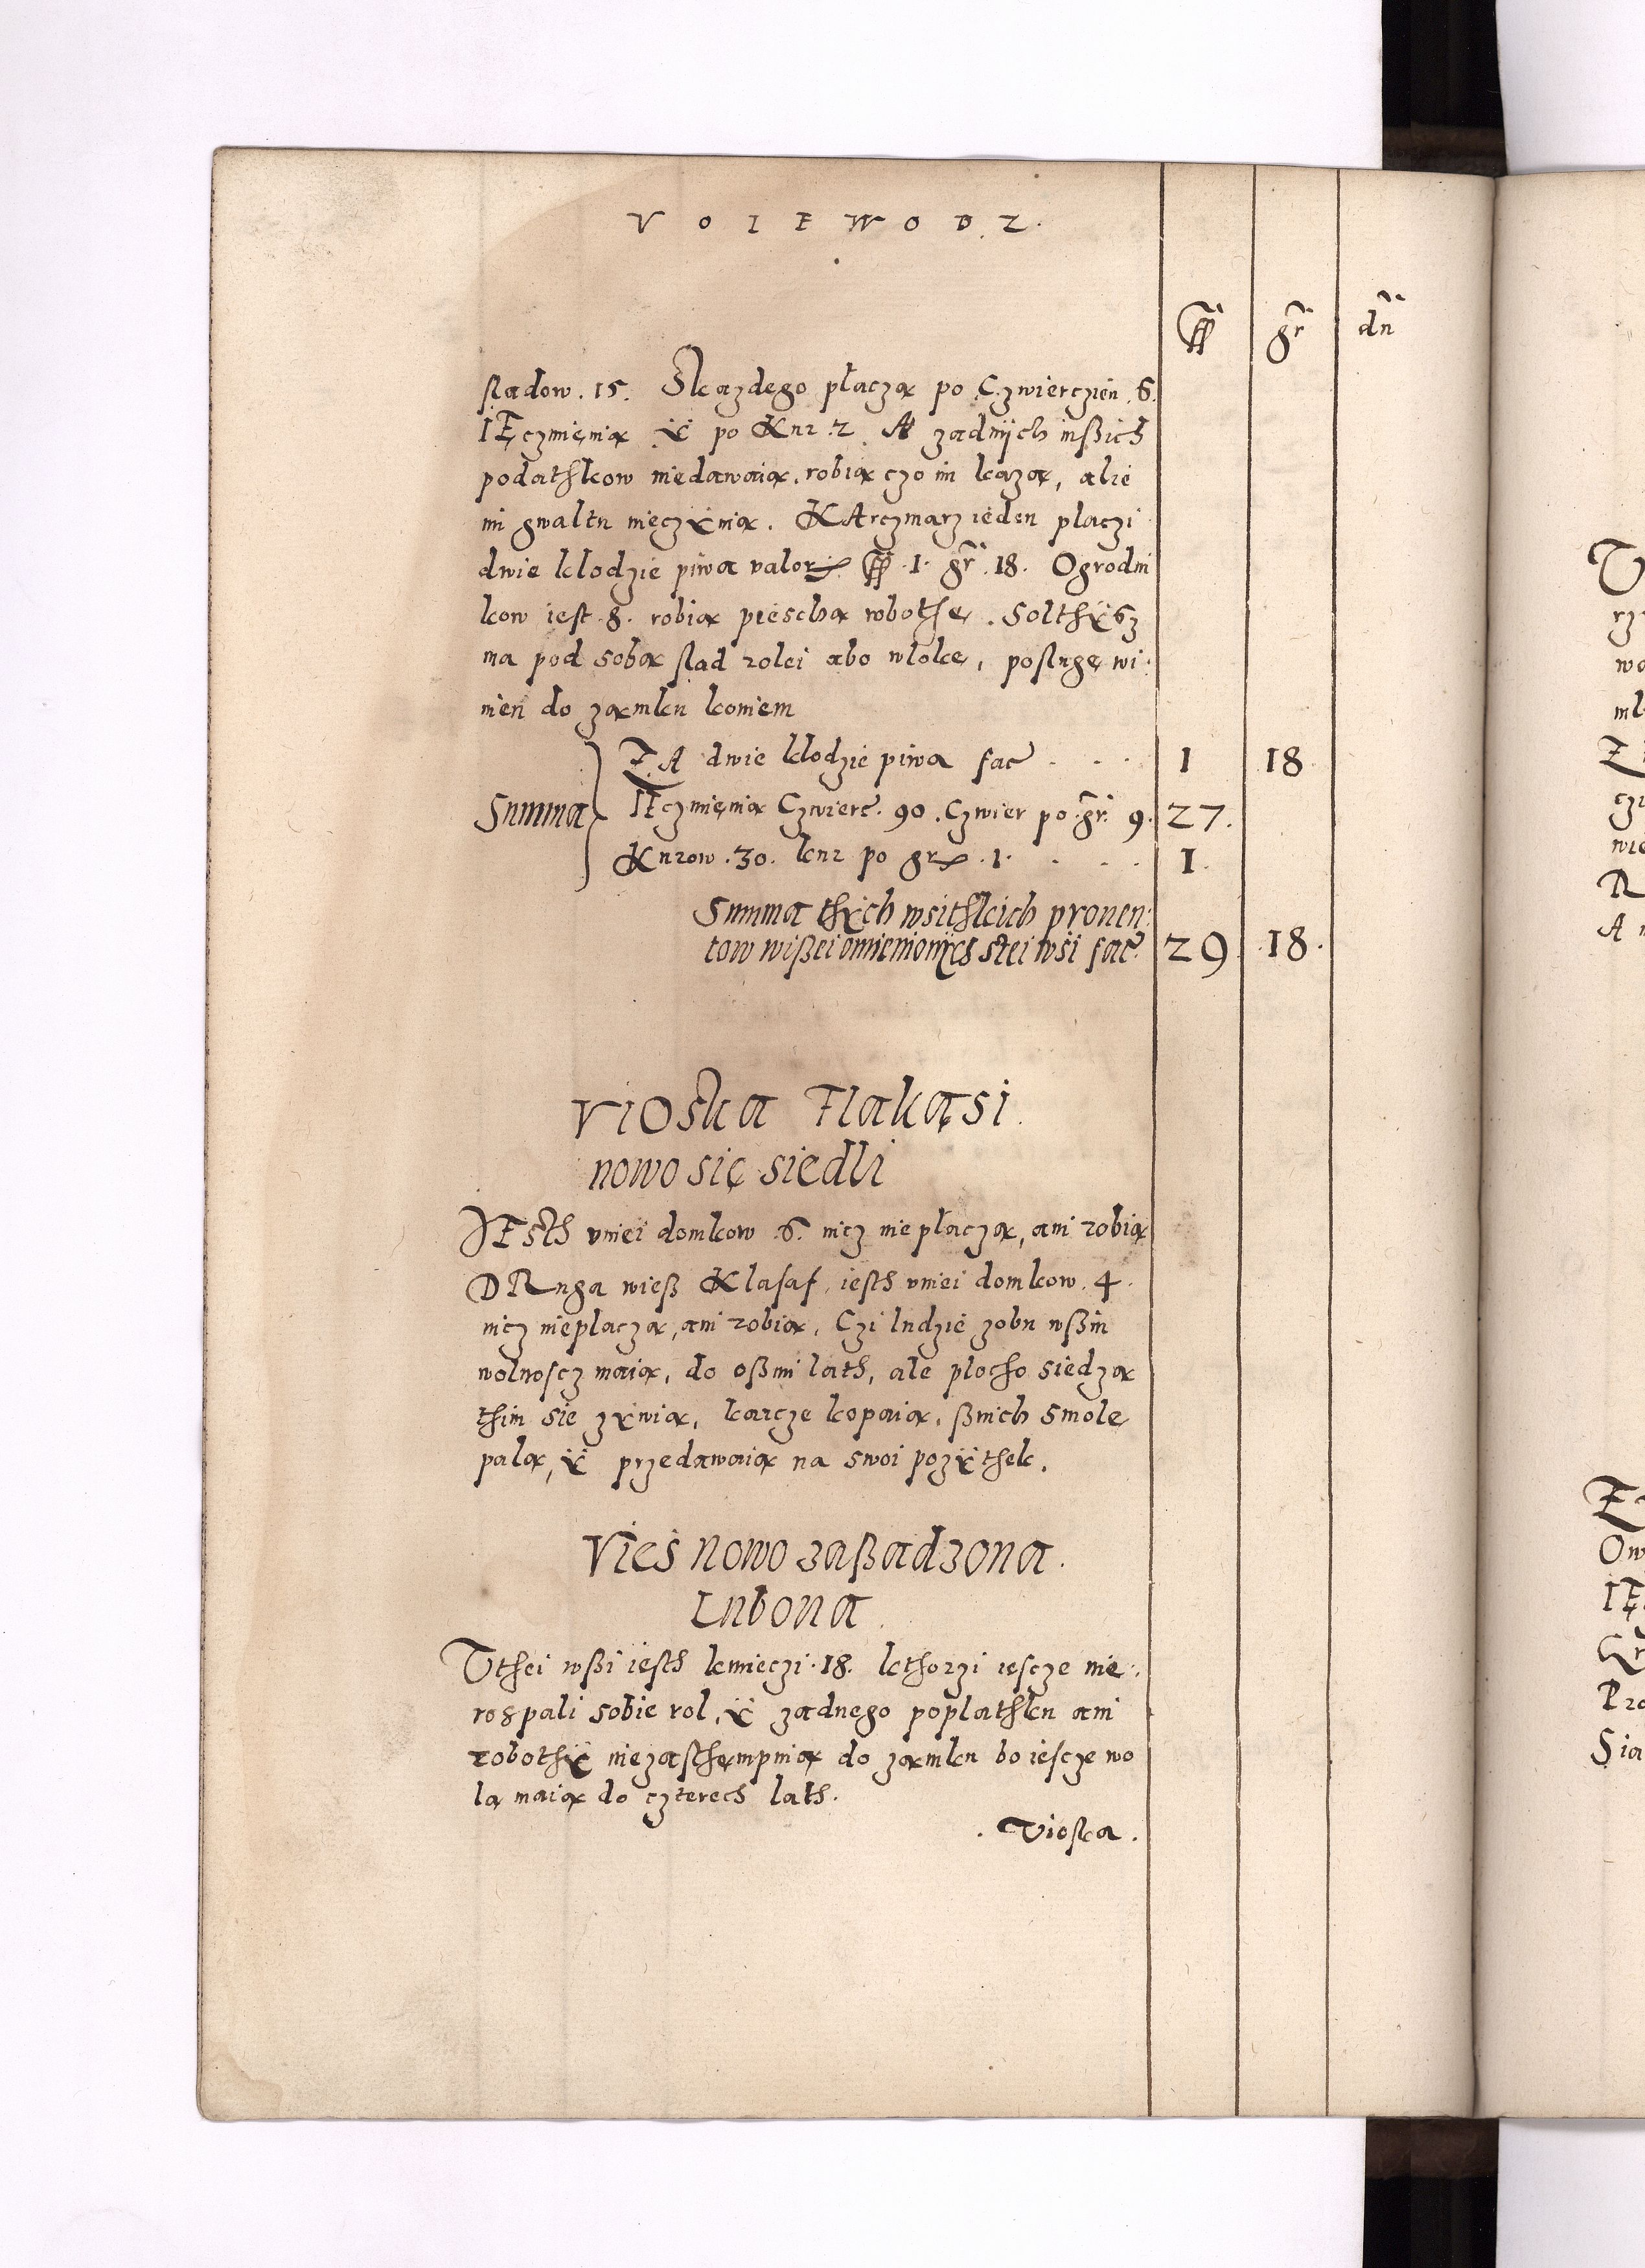 VOIEWODZ.
ffl gr dn
sladow .15. Skazdego płaczą po Czwierczien .6.
IĘczmięnia ÿ po Kur 2 A zadnÿch inßich
podathkow niedawaią, robią czo im każą, alie
im gwaltu nieczÿnią. KArczmarz ieden płaczi
dwie kłodzie piwa valor ffl .1. gr .18. Ogrodni
kow iest .8. robią piescha robothę. Solthÿß
ma pod sobą slad rolei abo włokę, posługę wi-
nien do zamku koniem
Summa
ZA dwie kłodzie piwa fac . . . 1 18
IĘczmięnia Czwierc .90. Czwier po .gr. 9. 27.
Kurow .30. kur po gr .1. . . . 1.
Summa thÿch wsithkich prouen:
tow wißei omienionÿch stei wsi fac. 29 .18.
VIOska Flakąsi.
nowo się siedli
JEsth vniei domkow .6. nicz nie płaczą, ani robią
DRuga wieß Klasaf, iesth vniei domkow .4.
nicz niepłaczą, ani robią, Czi ludzie zobu wßiu
wolnoscz maią, do oßmi lath, ale płocho siedzą
thim się zÿwią, karcze kopaią, ßnich smolę
palą, ÿ przedawaią na swoi pozÿthek.
Vieś nowo zaßadzona.
Lubona.
Vthei wßi iesth kmieczi .18. kthorzi iescze nie
rospali sobie rol, ÿ zadnego popłathku ani
robothÿ niezasthąmpuią do zamku bo iescze wo
lą maią do czterech lath.
. Vioska .